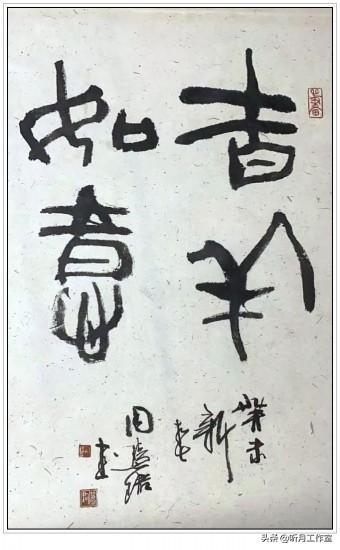 吉羊
如意
癸未
新春
周
书
头条 @听月工作室